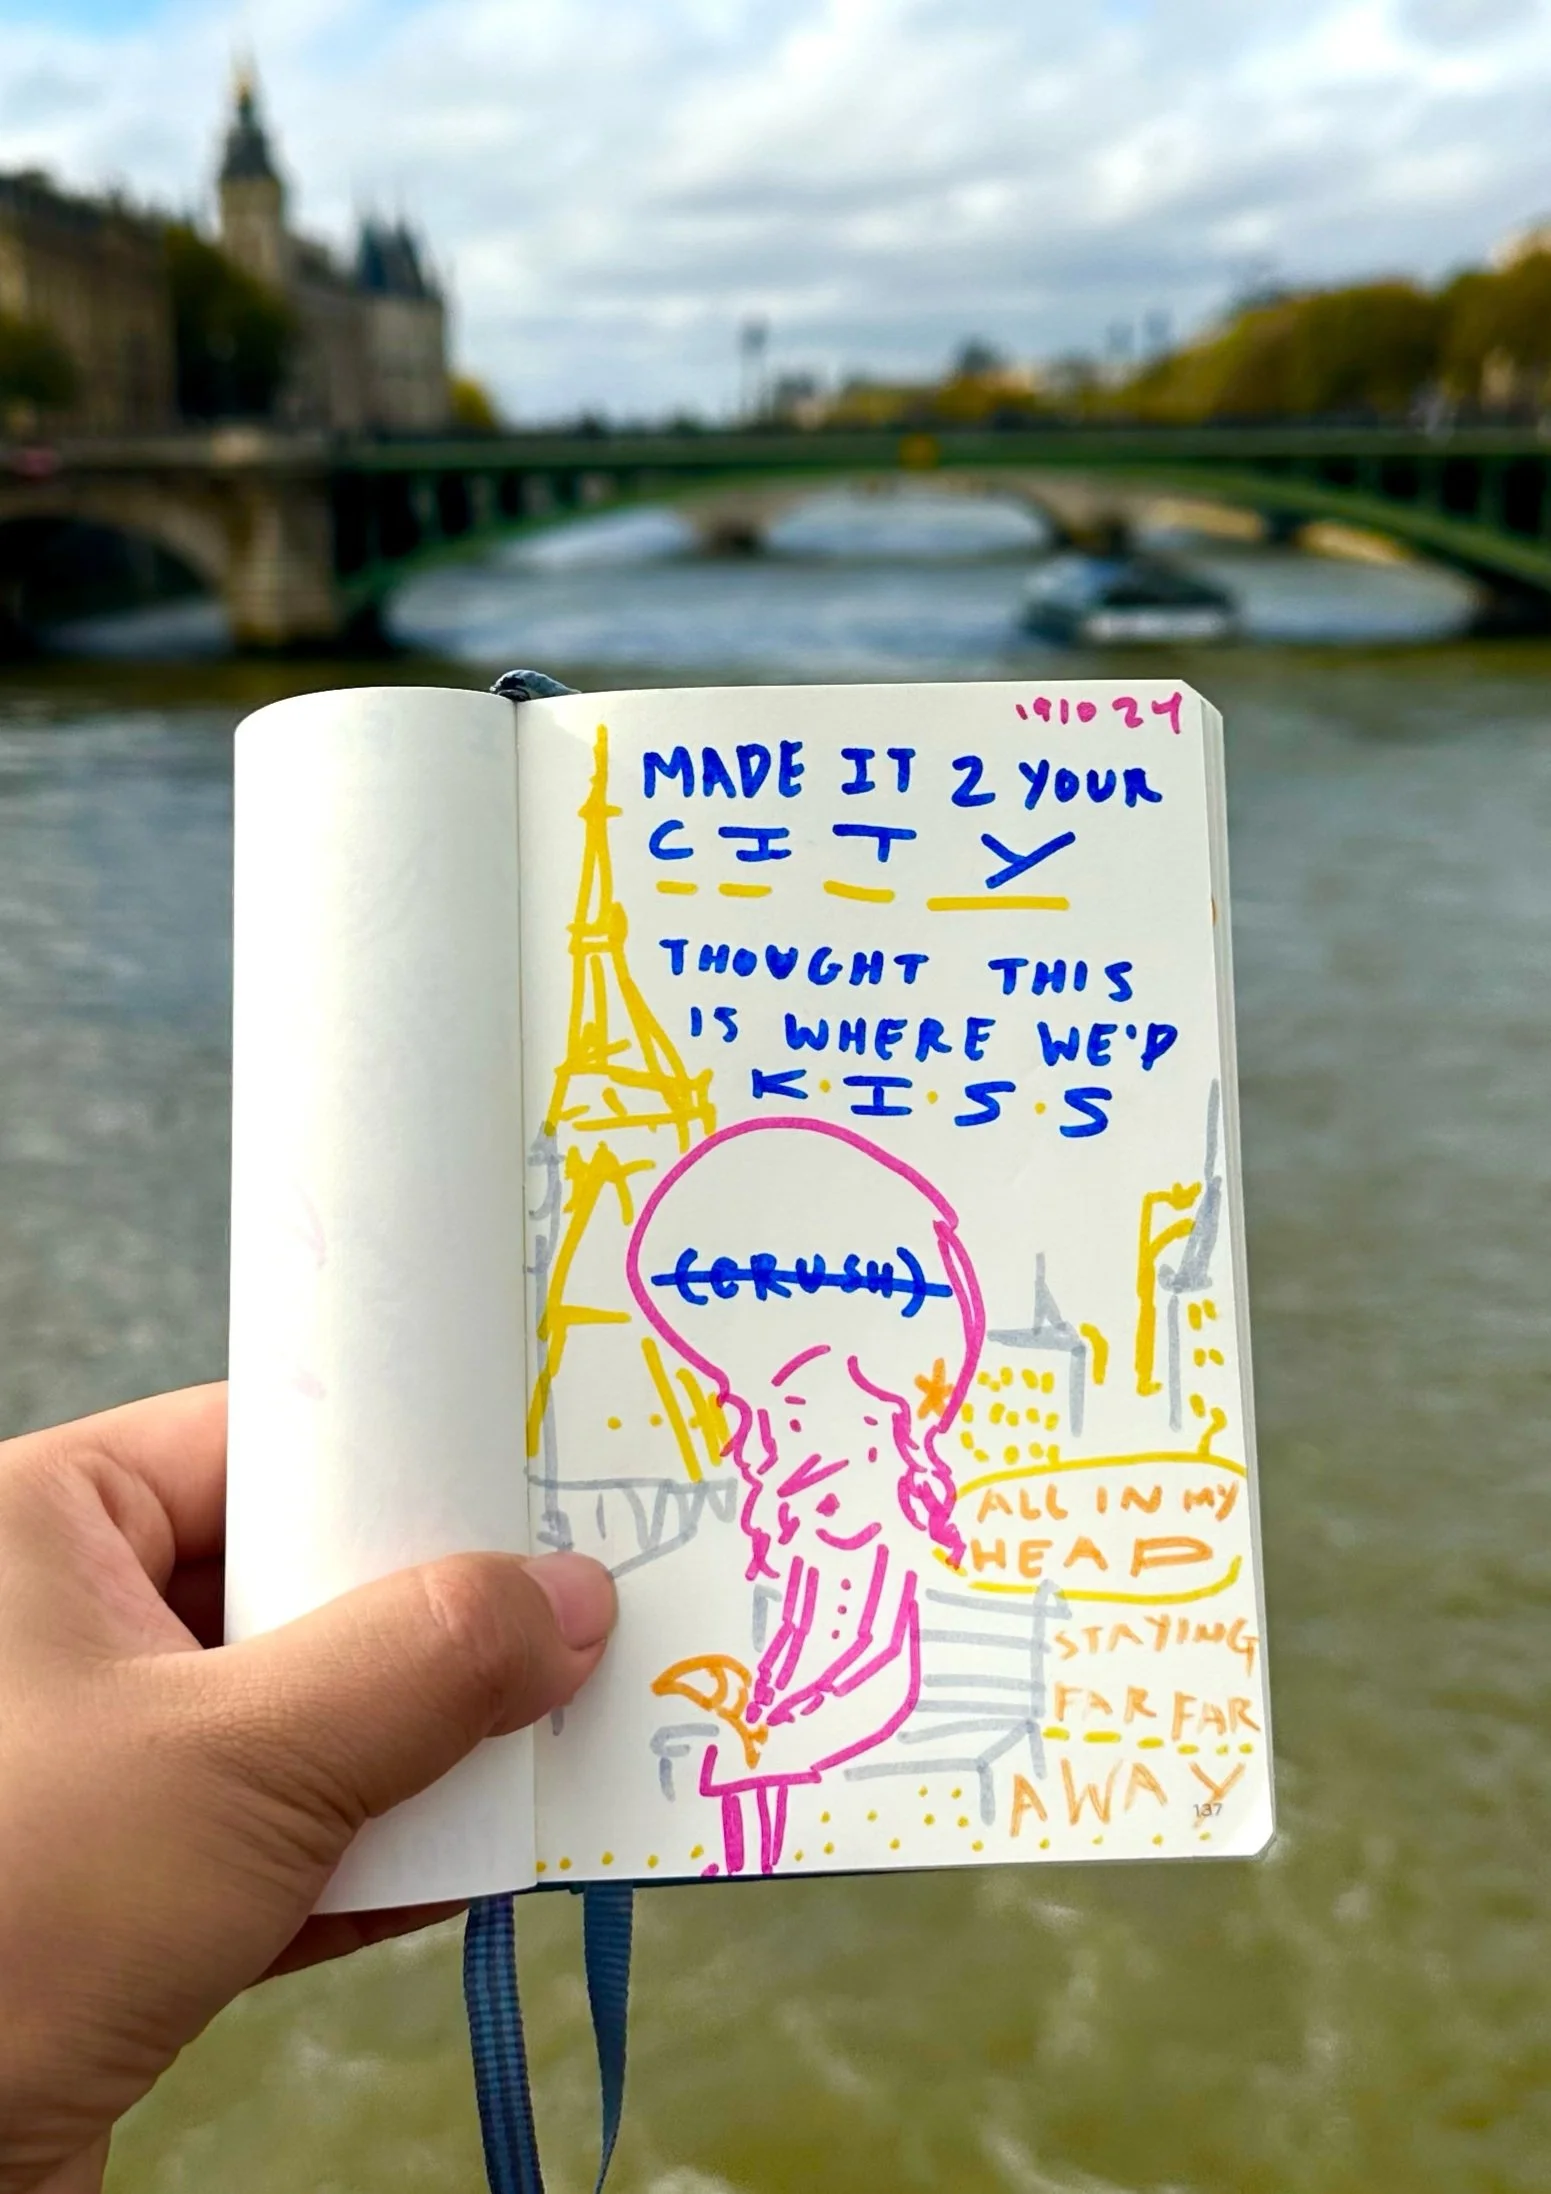 191024
MADE IT 2 YOUR
CITY
THOUGHT THIS
IS WHERE WE'D
K·I·S·S
(CRUSH)
ALL IN MY
HEAD
STAYING
FAR FAR
AWAY
137